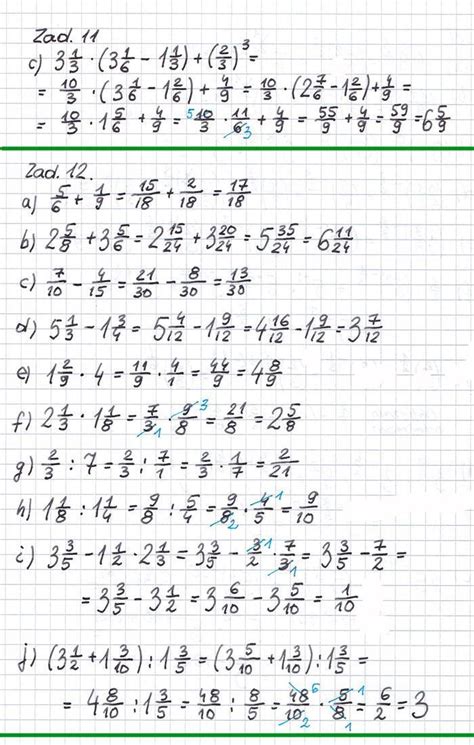 Zad. 11
c) 3 1/3 · (3 1/6 - 1 1/3) + (2/3)^3 =
= 10/3 · (3 1/6 - 1 2/6) + 4/9 = 10/3 · (2 7/6 - 1 2/6) + 4/9 =
= 10/3 · 1 5/6 + 4/9 = 5 10/3 · 11/6 3 + 4/9 = 55/9 + 4/9 = 59/9 = 6 5/9
Zad. 12.
a) 5/6 + 1/9 = 15/18 + 2/18 = 17/18
b) 2 5/8 + 3 5/6 = 2 15/24 + 3 20/24 = 5 35/24 = 6 11/24
c) 7/10 - 4/15 = 21/30 - 8/30 = 13/30
d) 5 1/3 - 1 3/4 = 5 4/12 - 1 9/12 = 4 16/12 - 1 9/12 = 3 7/12
e) 1 2/9 · 4 = 11/9 · 4/1 = 44/9 = 4 8/9
f) 2 1/3 · 1 1/8 = 7/3 1 · 9 3/8 = 21/8 = 2 5/8
g) 2/3 : 7 = 2/3 : 7/1 = 2/3 · 1/7 = 2/21
h) 1 1/8 : 1 1/4 = 9/8 : 5/4 = 9/8 2 · 4 1/5 = 9/10
i) 3 3/5 - 1 1/2 · 2 1/3 = 3 3/5 - 3 1/2 · 7/3 1 = 3 3/5 - 7/2 =
= 3 3/5 - 3 1/2 = 3 6/10 - 3 5/10 = 1/10
j) (3 1/2 + 1 3/10) : 1 3/5 = (3 5/10 + 1 3/10) : 1 3/5 =
= 4 8/10 : 1 3/5 = 48/10 : 8/5 = 48 6/10 2 · 5 1/8 1 = 6/2 = 3